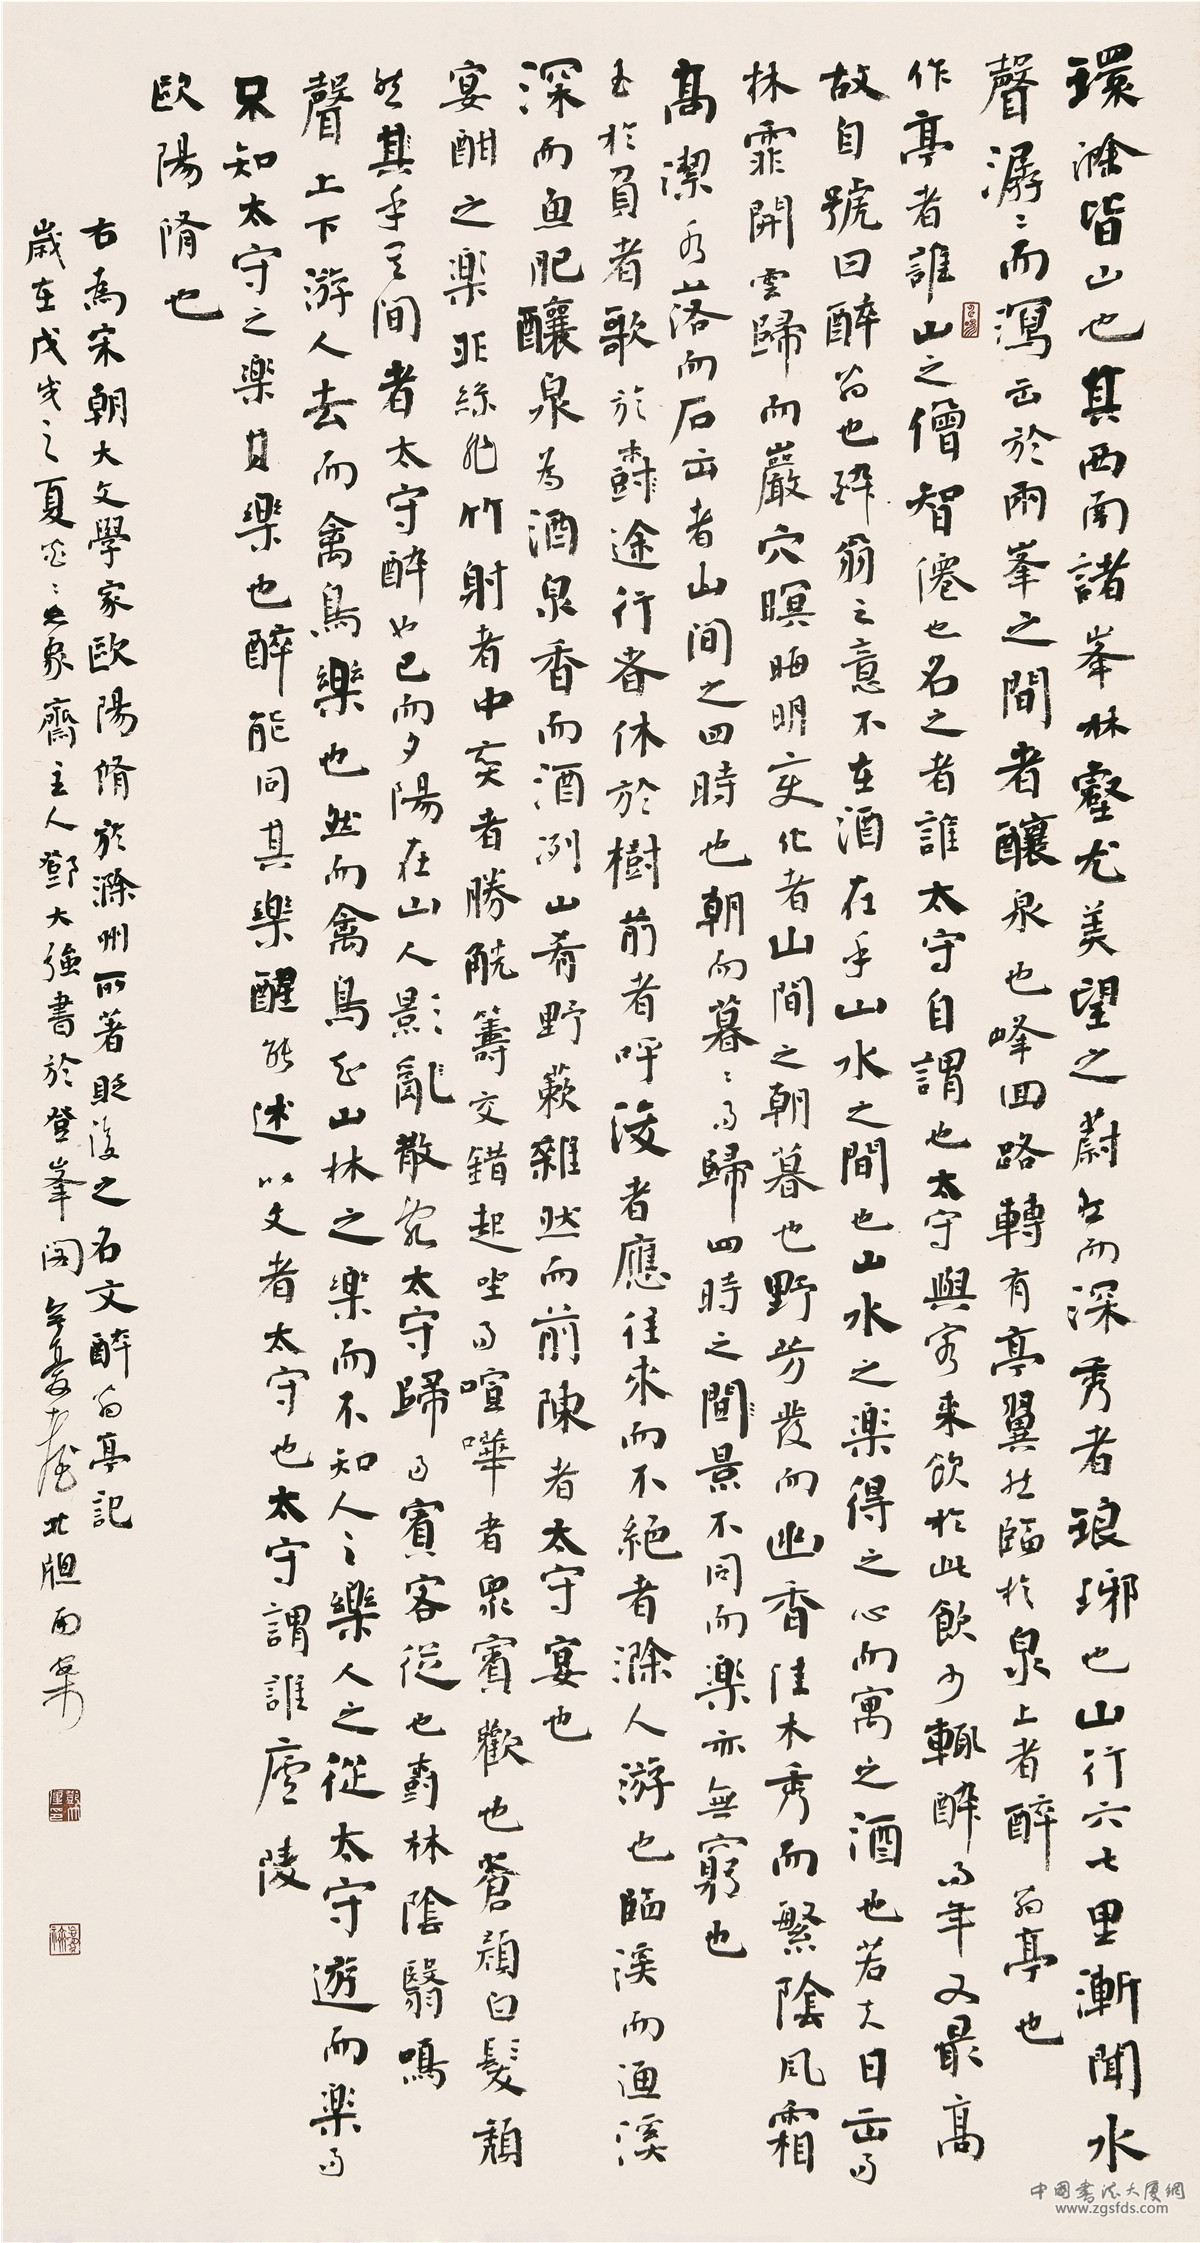 環滁皆山也其西南諸峯林壑尤美望之蔚然而深秀者琅琊也山行六七里漸聞水
聲潺〻而瀉出於兩峯之間者釀泉也峰回路轉有亭翼然臨於泉上者醉翁亭也
作亭者誰山之僧智僊也名之者誰太守自謂也太守與客來飲於此飲少輒醉而年又最高
故自號曰醉翁也醉翁之意不在酒在乎山水之間也山水之樂得之心而寓之酒也若夫日出而
林霏開雲歸而巖穴暝晦明變化者山間之朝暮也野芳發而幽香佳木秀而繁陰風霜
高潔水落而石出者山間之四時也朝而暮〻而歸四時之間景不同而樂亦無窮也
至於負者歌於塗途行者休於樹前者呼後者應往來而不絕者滁人游也臨溪而漁溪
深而魚肥釀泉為酒泉香而酒洌山肴野蔌雜然而前陳者太守宴也
宴酣之樂非絲非竹射者中奕者勝觥籌交錯起坐而喧嘩者眾賓歡也蒼顏白髮頹
然其乎其間者太守醉也已而夕陽在山人影〻亂散亂太守歸而賓客從也樹林陰翳鳴
聲上下游人去而禽鳥樂也然而禽鳥知山林之樂而不知人之樂人之從太守遊而樂而
不知太守之樂其樂也醉能同其樂醒能述以文者太守也太守謂誰廬陵
歐陽脩也
右為宋朝大文學家歐陽脩於滁州所著貶後之名文醉翁亭記
歲在戊戌之夏照〻無象齋主人鄧大強書於登峯閣
中國書法大廈網
www.zgsfds.com